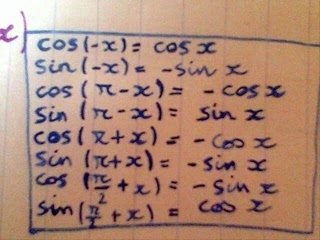 x)
cos(-x) = cos x
sin(-x) = -sin x
cos(π-x) = -cos x
sin(π-x) = sin x
cos(π+x) = -cos x
sin(π+x) = -sin x
cos(π/2 + x) = -sin x
sin(π/2 + x) = cos x